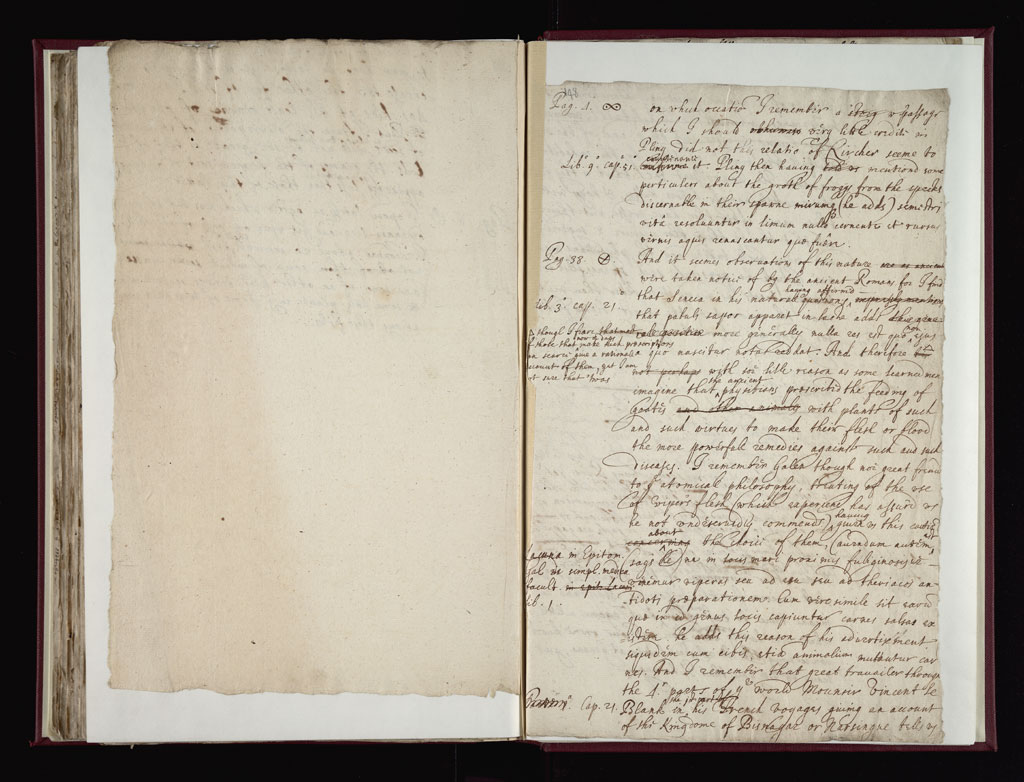 Pag. 1. ∞ on which occatiō I remember a story or passage
which I should otherwise very little credit in
Pliny did not this relatiō of Kircher seeme to
Lib. 9. cap. 51. confirme it. Pliny then having told us mentiond some
perticulers about the groth of froggs from the specks
discernable in their spawne mirumqꝫ (he adds) semestri
vitâ resoluuntur in limum nullo cernente et rursus
vernis aquis renascuntur quæ fuêre.
Pag. 38. And it seemes observations of this nature
were taken notice of by the ancient Romans for I find
that Seneca in his naturall questions, having affirmd
Lib. 3. cap. 21. that pabuli sapor apparet in lacte adds
though I feare more generally nulla res est quæ non ejus
of those that make such prescriptions a quo nascitur notas reddat. And therefore
can scarce give a rationall
account of them, yet I am not perhaps with soe little reason as some learned men
not sure that twas imagine that the ancient physitions prescribd the feeding of
Goates and other animals with plants of such
and such virtues to make their flesh or blood
the more powerfull remedies against such and such
diseases. I remember Galen though noe great friend
to ye atomicall philosophy, treating of the use
of vipers flesh (which experience has assurd us
he not undeservedly commends) having given us this caution
about concerning the choice of them (
Lacuna in Epitom. says he) ne in locis mari proximis
Gal. de simpl. medica
facult. in epit. Lacun vipera seu ad esu seu ad theriaces an-
lib. 1. tidoti præparationem. Cum vere simile sit
quæ in ejus genus locis capiuntur carnes salsas ex
he adds this reason of his advertisement
siquidem cum cibis, etiā animalium mutantur car
nes. And I remember that great travailer through
the 4. parts of ye world Mounsir Vincent le
Cap. 21. Blank in his French voyages giving an account
of the Kingdome of Bisnagar or Narsingue tells us